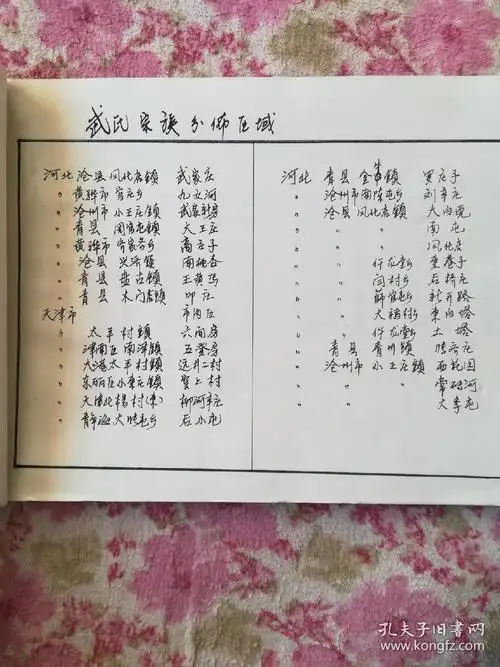 武氏宗族分佈区域
河北 沧县 风化店镇 武家庄
〃 黄骅市 官庄乡 九丈河
〃 沧州市 小王庄镇
〃 青县 周官屯镇 大王庄
〃 黄骅市 齐家务乡 高庄子
〃 沧县 兴济镇 南桃杏
〃 青县 盘古镇 王黄马
〃 青县 木门店镇 邱庄
天津市 市内区
〃 太平村镇 六间房
〃 津南区 南洋镇 五登房
〃 大港 太平村镇 远井二村
〃 东丽区 小东庄镇 赞上村
〃 天津北 杨村(东) 柳河辛庄
〃 静海 大瞧屯乡 后小屯
河北 青县 金牛镇 贾庄子
〃 沧州市 南陈屯乡 刘辛庄
〃 沧县 风化店镇 大白兔
〃 〃 南屯
〃 〃 风化店
〃 仵龙堂乡 枣巷子
〃 闫村乡 石桥庄
〃 薛官屯乡 新开路
〃 大褚村乡 东白塔
〃 仵龙堂乡 土塔
〃 青县 青州镇 陈齐庄
〃 沧州市 小王庄镇 西花园
〃 〃 常砖河
〃 〃 大李屯
孔夫子旧书网
www.kongfz.com